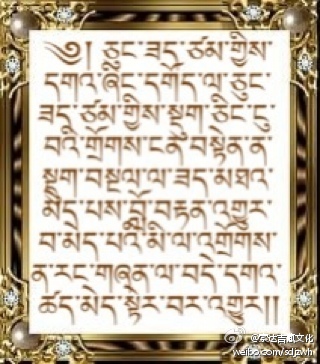 ༄། ཅུང་ཟད་ཙམ་གྱིས་
དགའ་ཞིང་དགོད་ལ་ཅུང་
ཟད་ཙམ་གྱིས་སྡུག་ཅིང་ངུ་
བའི་གྲོགས་ངན་བསྟེན་ན་
སྡུག་བསྔལ་ལ་ཟད་མཐའ་
མེད་པས་བློ་བརྟན་འགྱུར་
བ་མེད་པའི་མི་ལ་འགྲོགས་
ན་རང་གཞན་ལ་བདེ་དགའ་
ཚད་མེད་སྟེར་བར་འགྱུར།།
weibo.com/sdjzwh